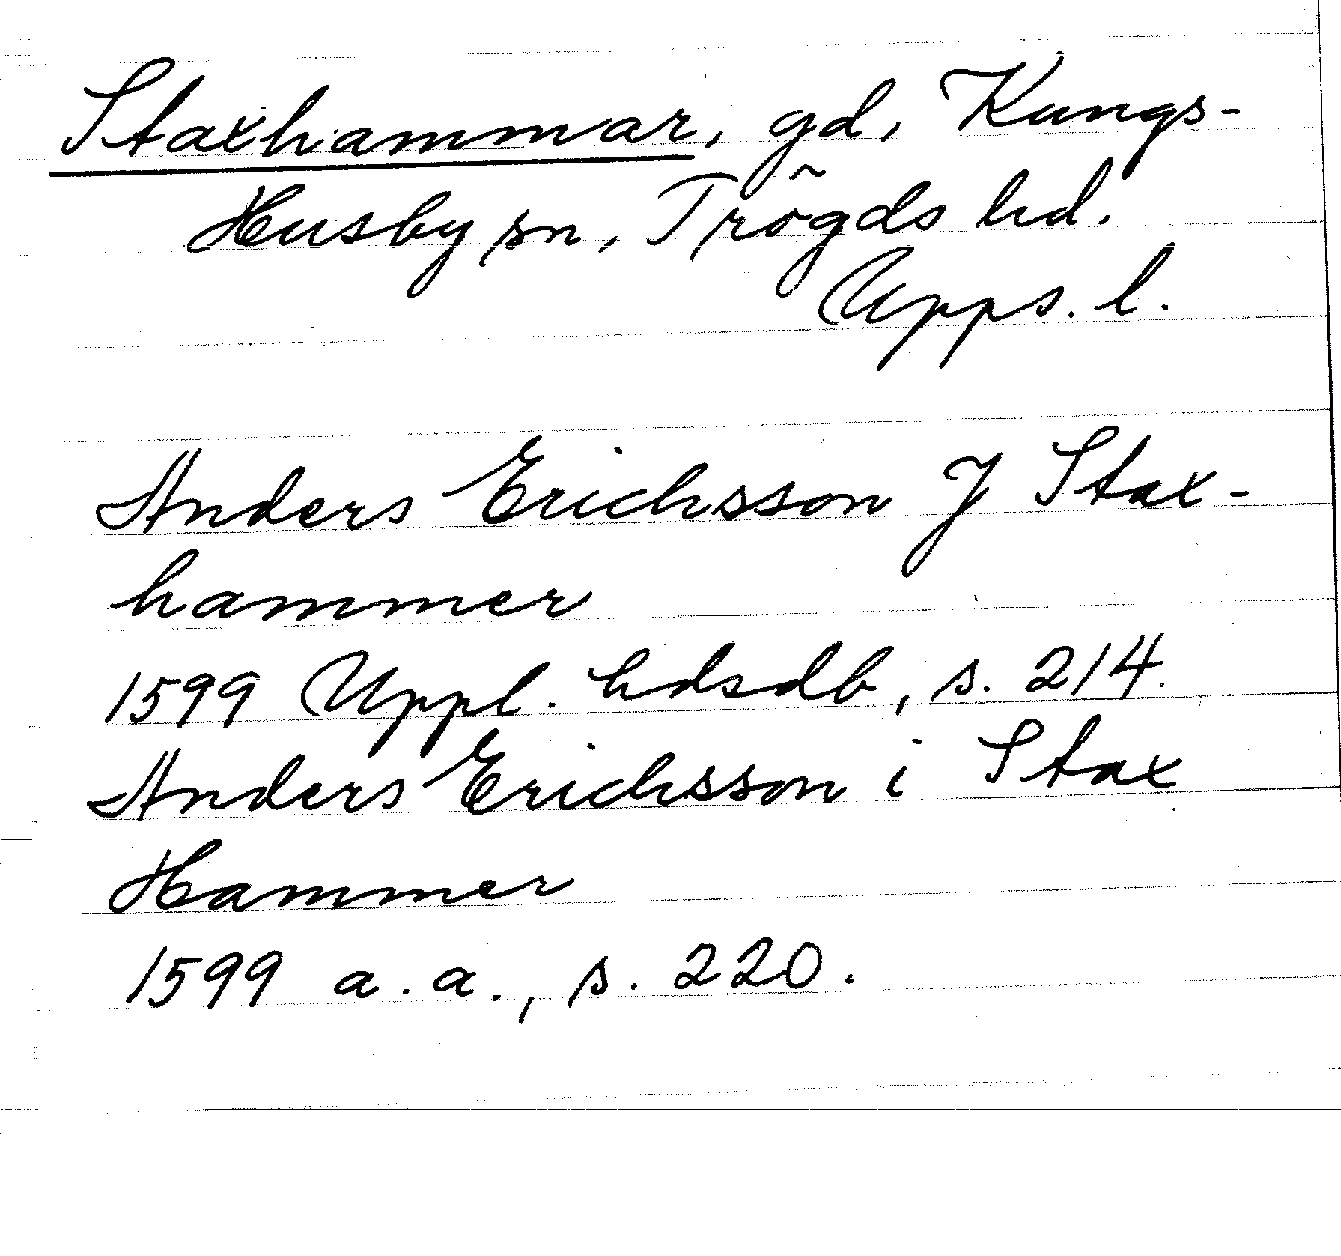 Staxhammar, gd, Kungs-
Husby sn, Trögds hd.
Upps. l.
Anders Erichsson J Stax-
hammer
1599 Uppl. hdsdb, s. 214.
Anders Erichsson i Stax
Hammer
1599 a.a., s. 220.